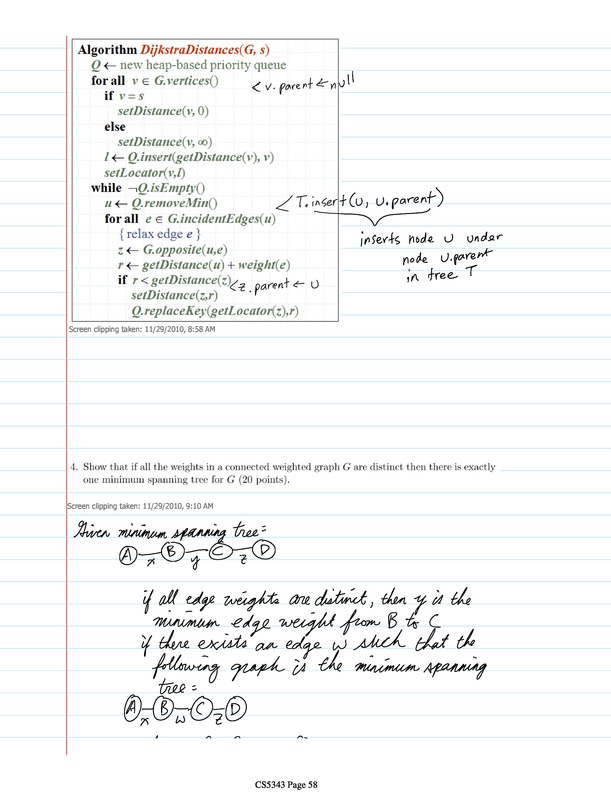 Algorithm DijkstraDistances(G, s)
Q ← new heap-based priority queue
for all v ∈ G.vertices()
< v.parent ← null
if v = s
setDistance(v, 0)
else
setDistance(v, ∞)
l ← Q.insert(getDistance(v), v)
setLocator(v,l)
while ¬Q.isEmpty()
u ← Q.removeMin()
< T.insert(u, u.parent)
for all e ∈ G.incidentEdges(u)
{ relax edge e }
inserts node u under
node u.parent
in tree T
z ← G.opposite(u,e)
r ← getDistance(u) + weight(e)
if r < getDistance(z)
< z.parent ← u
setDistance(z,r)
Q.replaceKey(getLocator(z),r)
Screen clipping taken: 11/29/2010, 8:58 AM
4. Show that if all the weights in a connected weighted graph G are distinct then there is exactly
one minimum spanning tree for G (20 points).
Screen clipping taken: 11/29/2010, 9:10 AM
Given minimum spanning tree =
A B C D
x y z
if all edge weights are distinct, then y is the
minimum edge weight from B to C
if there exists an edge w such that the
following graph is the minimum spanning
tree =
A B C D
x w z
CS5343 Page 58